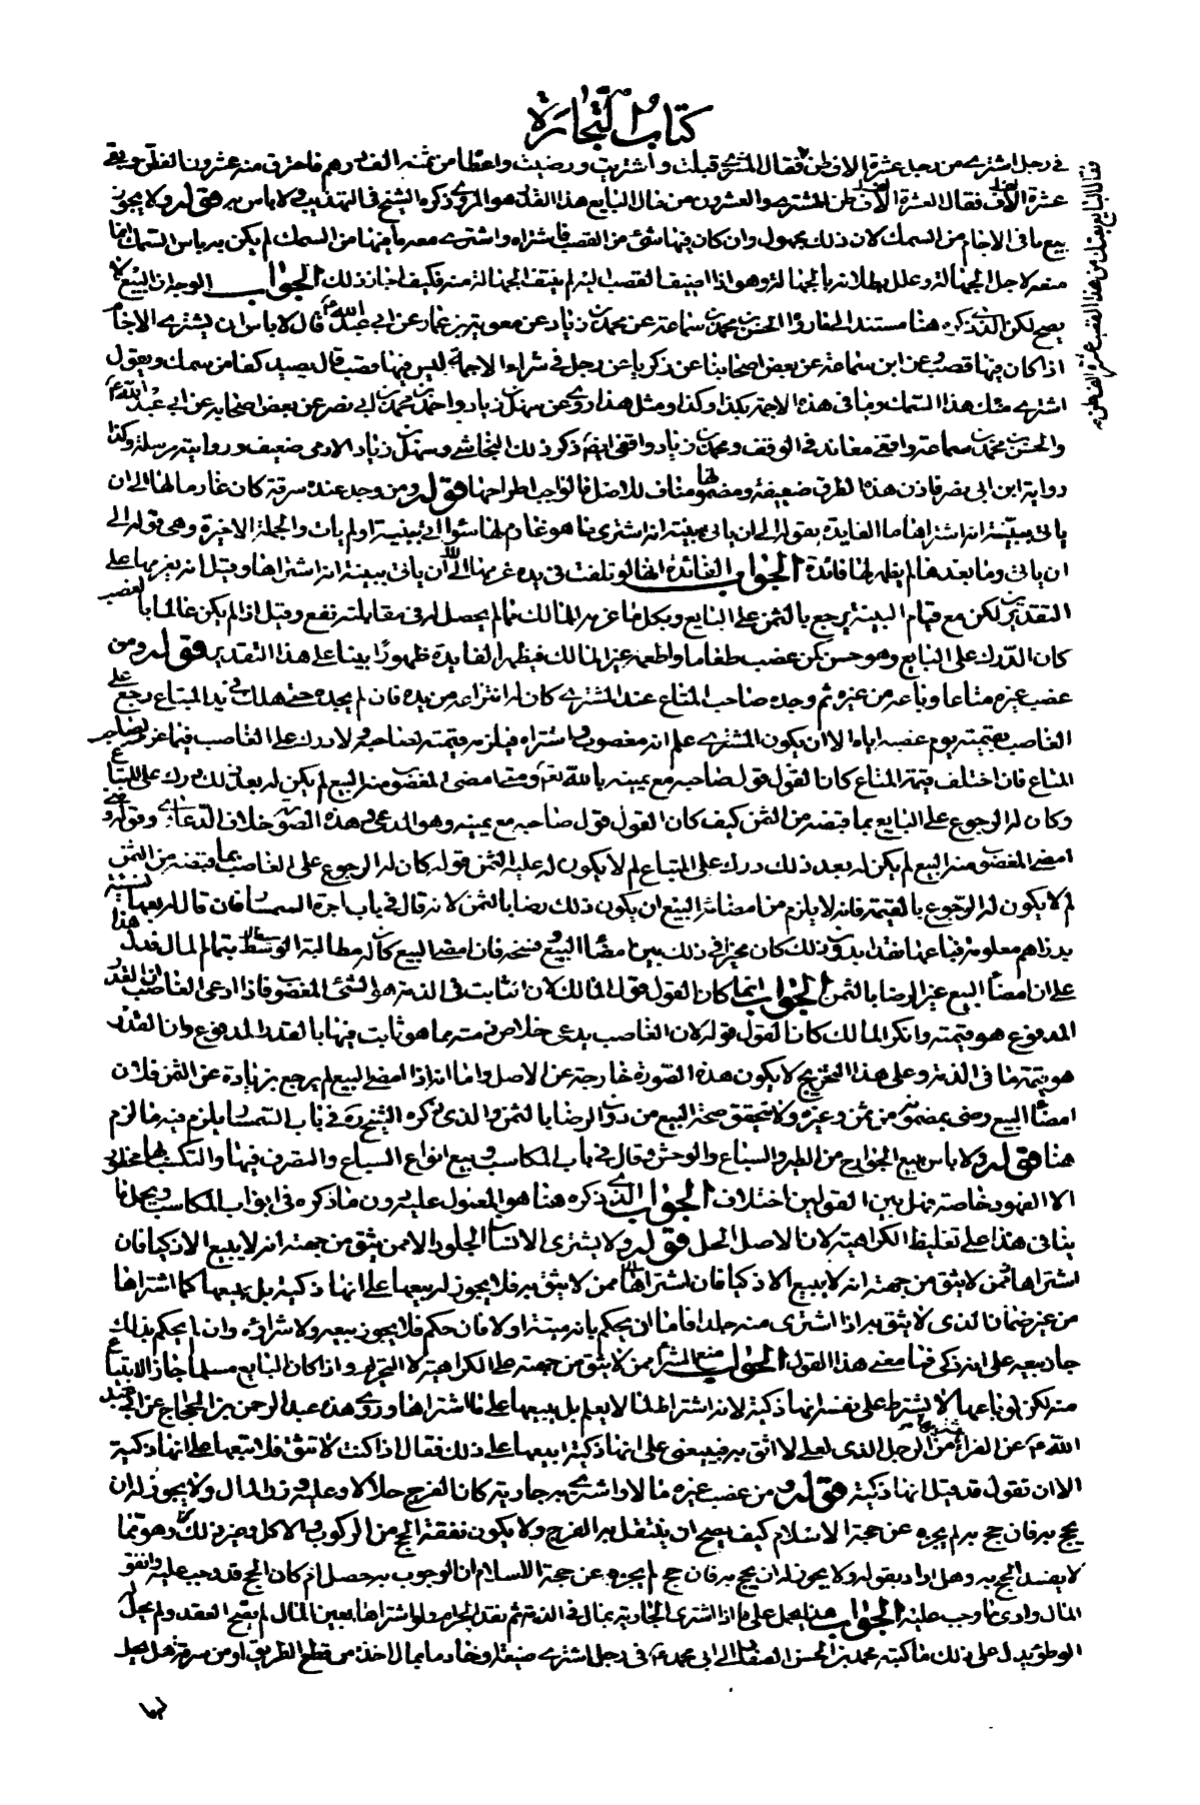 كتاب التجارة
في رجل اشترى من رجل عشرة الاف طن فقال المشتري قبلت واشتريت ورضيت واعطا من ثمنه الف درهم فاحترق منه عشرون الف طن وبقي
عشرة الاف فقال العشرة الاف طن للمشتري والعشرون من مال البايع هذا القدر هو المروي ذكره الشيخ في التهذيب ولا باس به قوله ولا يجوز
بيع ما في الاجام من السمك لان ذلك مجهول وان كان فيها شئ من القصب فاشتراه واشترى معه ما فيها من السمك لم يكن به باس السمك انما
منعه لاجل الجهالة وعلل بطلانه بالجهالة وهو اذا اضيف القصب اليه لم ينتف الجهالة منه فكيف اجاز ذلك الجواب الوجه ان البيع لا
يصح لكن الذي ذكره هنا مستند الى ما رواه الحسن بن محمد بن سماعة عن محمد بن زياد عن معوية بن عمار عن ابي عبد الله ع قال لا باس ان يشتري الاجام
اذا كان فيها قصب وعن ابن سماعة عن بعض اصحابنا عن زكريا عن رجل في شراء الاجمة ليس فيها قصب قال يصيد كفا من سمك ويقول
اشترى منك هذا السمك وما في هذه الاجمة بكذا وكذا ومثل هذا روى عن سهل بن زياد واحمد بن محمد بن ابي نصر عن بعض اصحابه عن ابي عبد الله ع
والحسن بن محمد بن سماعة واقفي معاند في الوقف ومحمد بن زياد واقفي ايضا ذكر ذلك النجاشي وسهل بن زياد الادمي ضعيف وروايته مرسلة وكذا
رواية ابن ابي نصر فاذن هذه الطرق ضعيفة ومضمونها مناف للاصل فالواجب اطراحها قوله ومن وجد عنده سرقة كان غارما لها الى ان
ياتي ببينة انه اشتراها ما الفايدة بقوله الى ان ياتي ببينة انه اشترى ما هو غارم لها سواء اتى ببينة او لم يات والجملة الاخيرة وهي قوله الى
ان ياتي وما بعدها لم يظهر لها فائدة الجواب الفائدة انها لو تلفت في يده غرمها الى ان ياتي ببينة انه اشتراها وقيل انه يغرمها على
التقديرين لكن مع قيام البينة يرجع بالثمن على البايع وبكل ما غرمه المالك مما لم يحصل له في مقابلته نفع وقيل اذا لم يكن عالما بالغصب
كان الدرك على البايع وهو حسن كمن غصب طعاما واطعمه غير المالك فيظهر الفايدة ظهورا بينا على هذا التقدير قوله ومن
غصب غيره متاعا وباعه من غيره ثم وجده صاحب المتاع عند المشتري كان له انتزاعه من يده فان لم يجده حتى هلك في يد المبتاع رجع على
الغاصب بقيمته يوم غصبه اياه الا ان يكون المشتري علم انه مغصوب واشتراه فيلزمه قيمته لصاحبه ولا درك على الغاصب فيما غرمه لصاحب
المتاع فان اختلف قيمة المتاع كان القول قول صاحبه مع يمينه بالله تعالى ومتى امضى المغصوب منه البيع لم يكن له بعد ذلك درك على المبتاع
وكان له الرجوع على البايع بما قبضه من الثمن كيف كان القول قول صاحبه مع يمينه وهو المدعي وهذه الصورة خلاف الدعاوي وقوله ومتى
امضى المغصوب منه البيع لم يكن له بعد ذلك درك على المبتاع لم لا يكون له عليه الثمن قوله كان له الرجوع على الغاصب بما قبضه من الثمن
لم لا يكون له الرجوع بالقيمة فانه لا يلزم من امضائه البيع ان يكون ذلك رضا بالثمن لانه قال في باب اجرة السمسار فان قال له بعها نسيئة
بدراهم معلومة فباعها نقدا بدون ذلك كان مخيرا في ذلك بين امضاء البيع وفسخه فان امضى البيع كان له مطالبة الوسيط بتمام المال فدل هذا
على ان امضاء البيع غير الرضا بالثمن الجواب انما كان القول قول المالك لان الثابت في الذمة هو الشئ المغصوب فاذا ادعى الغاصب ان القدر
المدفوع هو قيمته وانكر المالك كان القول قوله لان الغاصب يدعي خلاص ذمته مما هو ثابت فيها بالقدر المدفوع وان القدر
هو قيمة ما في الذمة وعلى هذا التخريج لا يكون هذه الصورة خارجة عن الاصل واما انه اذا امضى البيع لم يرجع بزيادة عن الثمن فلان
امضاء البيع رضى بمضمونه من ثمن وغيره ولا يتحقق صحة البيع من دون الرضا بالثمن والذي ذكره الشيخ ره في باب السمسار يلزم فيه ما لزم
هنا قوله ولا باس ببيع الجوارح من الطير والسباع والوحش وقال في باب المكاسب وبيع انواع السباع والتصرف فيها والتكسب بها محظور
الا الفهود خاصة فهل بين القولين اختلاف الجواب الذي ذكره هنا هو المعول عليه دون ما ذكره في ابواب المكاسب ويحمل ما
ينافي هذا على تغليظ الكراهية لان الاصل الحل قوله ولا يشتري الانسان الجلود الا ممن يثق من جهته انه لا يبيع الا ذكيا فان
اشتراها ممن لا يثق به فلا يجوز له بيعها على انها ذكية بل يبيعها كما اشتراها
من غير ضمان الذي لا يثق به اذا اشترى منه جلدا فاما ان يحكم بانه ميتة او لا فان حكم فلا يجوز بيعه ولا شراؤه وان لم يحكم بذلك
جاز بيعه على انه ذكي فما معنى هذا القول الجواب منع الشراء ممن لا يثق من جهته على الكراهية لا التحريم واذا كان البايع مسلما جاز الابتياع
منه لكن لو باعها لا يشترط على نفسه انها ذكية لانه اشتراط لما لا يعلم بل يبيعها على ما اشتراها وروى هذه عبد الرحمن بن الحجاج عن ابي عبد
الله ع عن الفراء من الرجل الذي لعلي لا اثق به فيبيعني على انها ذكية ابيعها على ذلك فقال اذا كنت لا تثق فلا تبعها على انها ذكية
الا ان تقول قد قيل انها ذكية قوله ومن غصب غيره مالا واشترى به جارية كان الفرج حلالا وعليه وزر المال ولا يجوز له ان
يحج به فان حج به لم يجزه عن حجة الاسلام كيف يصح ان ينتقل به الفرج ولا يكون نفقة الحج من الركوب والاكل وغير ذلك وهو مما
لا يفسد الحج به وهل اراد بقوله ولا يجوز له ان يحج به فان حج لم يجزه عن حجة الاسلام ان الوجوب به حصل ام كان الحج قد وجب عليه وانفق
المال وادى ما وجب عليه الجواب هذا يحمل على ما اذا اشترى الجارية بمال في الذمة ثم نقد الحرام ولو اشتراها بعين المال لم يصح العقد ولم يحل له
الوطؤ يدل على ذلك ما كتبه محمد بن الحسن الصفار الى ابي محمد ع في رجل اشترى ضيعة وخادما بمال اخذه من قطع الطريق او من سرقة هل يحل
فقال البايع بعتك من هذا القصب عشرة الاف طن